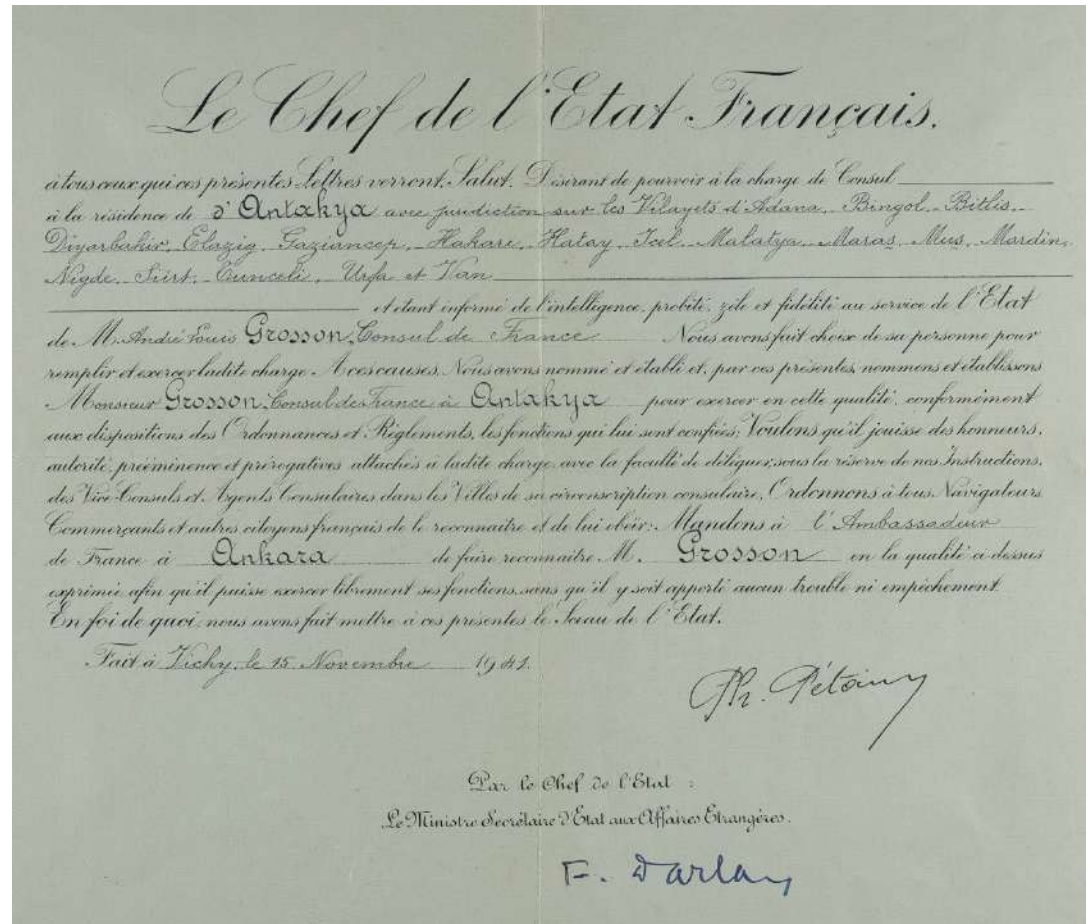 Le Chef de l'Etat Français.
à tous ceux qui ces présentes Lettres verront, Salut. Désirant de pourvoir à la charge de Consul
à la résidence de d'Antakya avec juridiction sur les Vilayets d'Adana - Bingol - Bitlis -
Diyarbakir - Elazig - Gaziancep - Hakare - Hatay - Icel - Malatya - Maras - Mus - Mardin,
Nigde - Siirt - Cunceli - Urfa et Van
et étant informé de l'intelligence, probité, zèle et fidélité au service de l'Etat
de M. André Louis Grosson, Consul de France Nous avons fait choix de sa personne pour
remplir et exercer ladite charge. A ces causes, Nous avons nommé et établi et, par ces présentes, nommons et établissons
Monsieur Grosson, Consul de France à Antakya pour exercer en cette qualité, conformément
aux dispositions des Ordonnances et Règlements, les fonctions qui lui sont confiées; Voulons qu'il jouisse des honneurs,
autorité, prééminence et prérogatives attachés à ladite charge, avec la faculté de déléguer, sous la réserve de nos Instructions,
des Vice-Consuls et Agents Consulaires dans les Villes de sa circonscription consulaire, Ordonnons à tous Navigateurs
Commerçants et autres citoyens français de le reconnaitre et de lui obéir; Mandons à l'Ambassadeur
de France à Ankara de faire reconnaitre M. Grosson en la qualité ci dessus
exprimée, afin qu'il puisse exercer librement ses fonctions, sans qu'il y soit apporté aucun trouble ni empêchement.
En foi de quoi, nous avons fait mettre à ces présentes le Sceau de l'Etat.
Fait à Vichy, le 15 Novembre 1941.
Ph. Pétain
Par le Chef de l'Etat :
Le Ministre Secrétaire d'Etat aux Affaires Etrangères.
F. Darlan